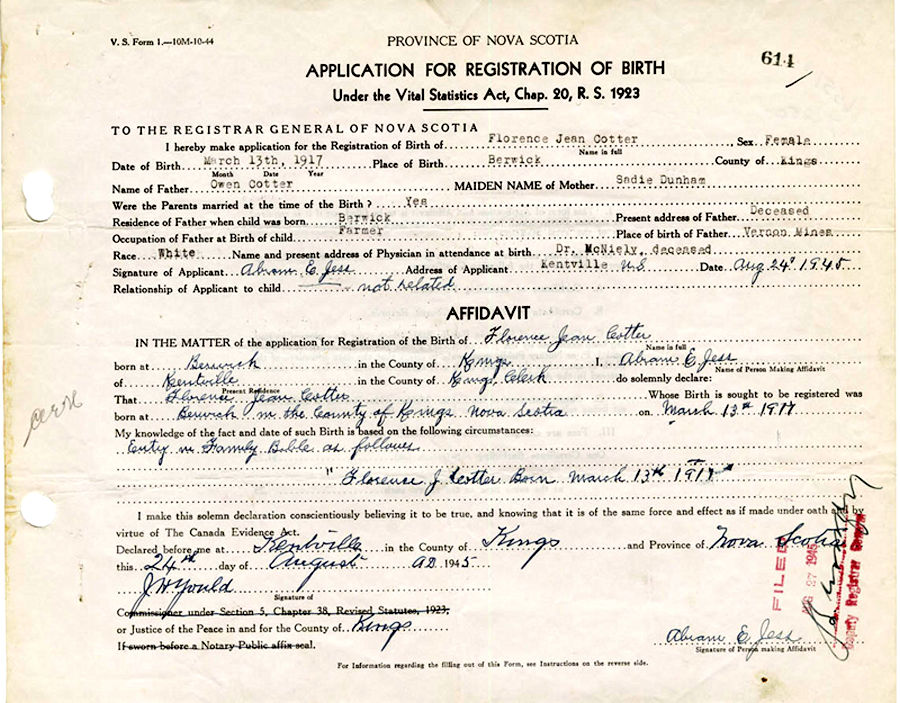 V. S. Form 1.—10M-10-44
PROVINCE OF NOVA SCOTIA
614
APPLICATION FOR REGISTRATION OF BIRTH
Under the Vital Statistics Act, Chap. 20, R. S. 1923
TO THE REGISTRAR GENERAL OF NOVA SCOTIA
I hereby make application for the Registration of Birth of Florence Jean Cotter Sex Female
Name in full
Date of Birth March 13th, 1917 Place of Birth Berwick County of Kings
Month Date Year
Name of Father Owen Cotter MAIDEN NAME of Mother Sadie Dunham
Were the Parents married at the time of the Birth? Yes
Residence of Father when child was born Berwick Present address of Father Deceased
Occupation of Father at Birth of child Farmer Place of birth of Father Vernon Mines
Race White Name and present address of Physician in attendance at birth Dr. McNiely, deceased
Signature of Applicant Abram E. Jess Address of Applicant Kentville N.S Date Aug 24th 1945
Relationship of Applicant to child not related
AFFIDAVIT
IN THE MATTER of the application for Registration of the Birth of Florence Jean Cotter
Name in full
born at Berwick in the County of Kings I, Abram E. Jess
Name of Person Making Affidavit
of Kentville in the County of Kings, Clerk do solemnly declare:
Present Residence
That Florence Jean Cotter Whose Birth is sought to be registered was
born at Berwick in the County of Kings, Nova Scotia on March 13th 1917
My knowledge of the fact and date of such Birth is based on the following circumstances:
Entry in Family Bible as follows
"Florence J Cotter Born March 13th 1917"
I make this solemn declaration conscientiously believing it to be true, and knowing that it is of the same force and effect as if made under oath and by
virtue of The Canada Evidence Act.
Declared before me at Kentville in the County of Kings and Province of Nova Scotia
this 24th day of August AD 1945
Signature of
Commissioner under Section 5, Chapter 38, Revised Statutes, 1923,
or Justice of the Peace in and for the County of Kings
If sworn before a Notary Public affix seal.
Abram E. Jess
Signature of Person making Affidavit
FILED
AUG 27 1945
Deputy Registrar General
For Information regarding the filling out of this Form, see Instructions on the reverse side.